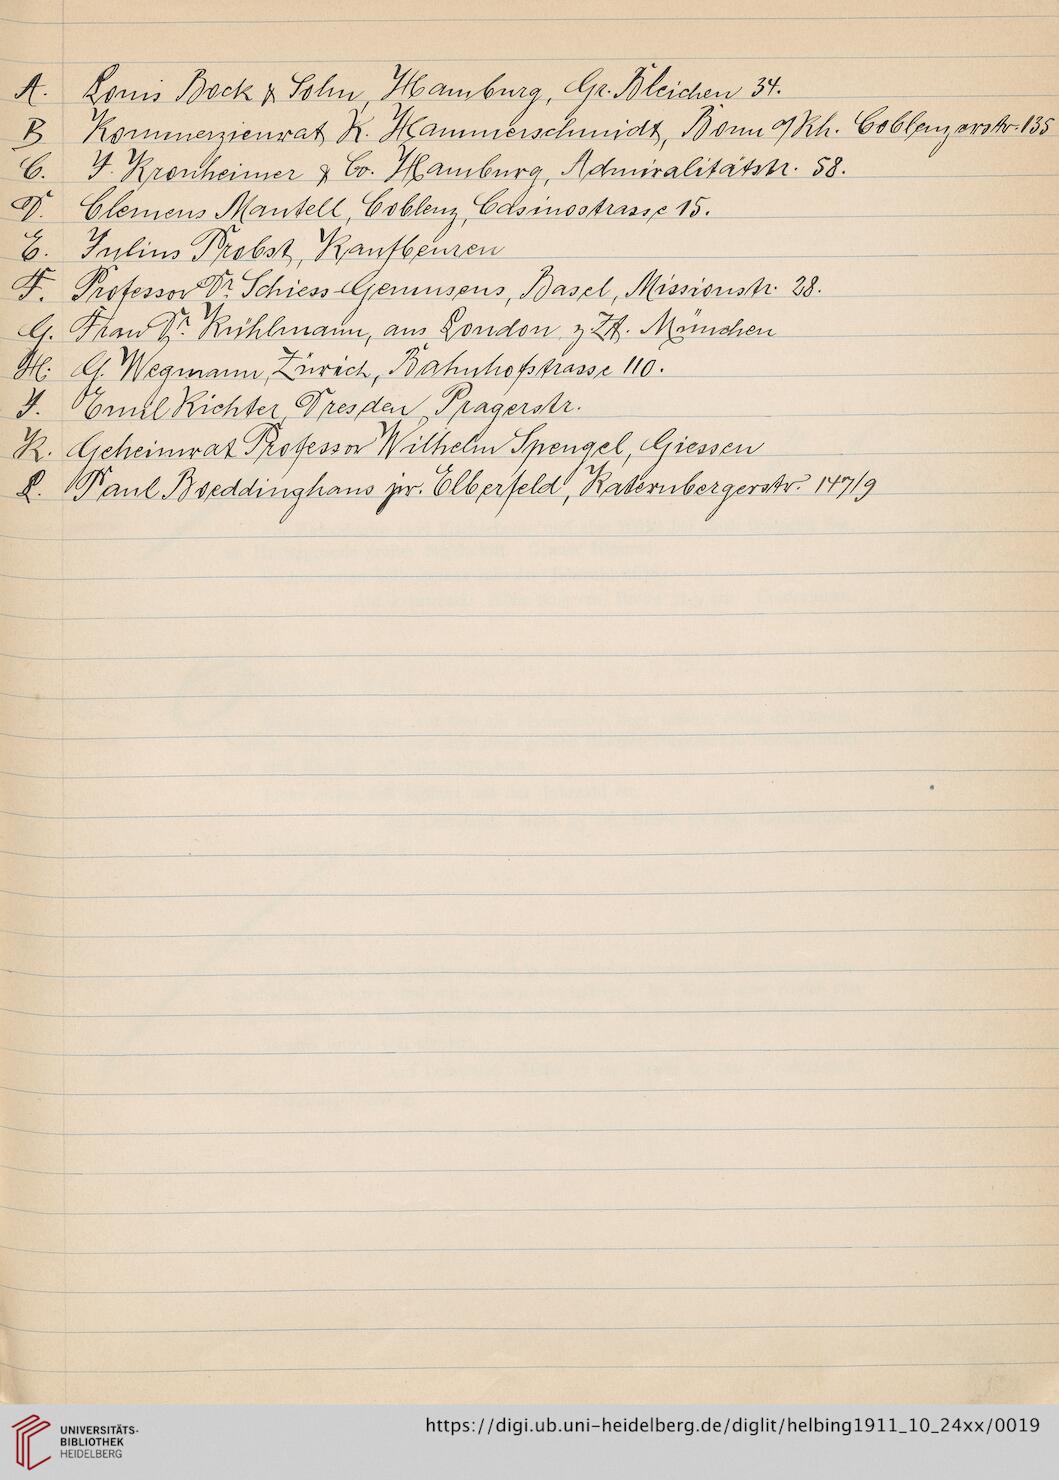 A. Louis Bock & Sohn, Hamburg, Gr. Bleichen 34.
B Kommerzienrat K. Hammerschmidt, Bonn a/Rh. Coblenzerstr. 135
C. J. Kronheimer & Co. Hamburg, Admiralitätstr. 58.
D. Clemens Mantell, Coblenz, Casinostrasse 15.
E. Julius Probst, Kaufbeuren
F. Professor Dr. Schiess-Gemuseus, Basel, Missionstr. 28.
G. Frau Dr. Kühlmann, aus London z Zt. München
H. G. Wegmann, Zürich, Bahnhofstrasse 110.
J. Emil Richter, Dresden, Pragerstr.
K. Geheimrat Professor Wilhelm Spengel, Giessen
L. Paul Boeddinghaus jr. Elberfeld, Katernbergerstr. 147/9
UNIVERSITÄTS-
BIBLIOTHEK
HEIDELBERG
https://digi.ub.uni-heidelberg.de/diglit/helbing1911_10_24xx/0019